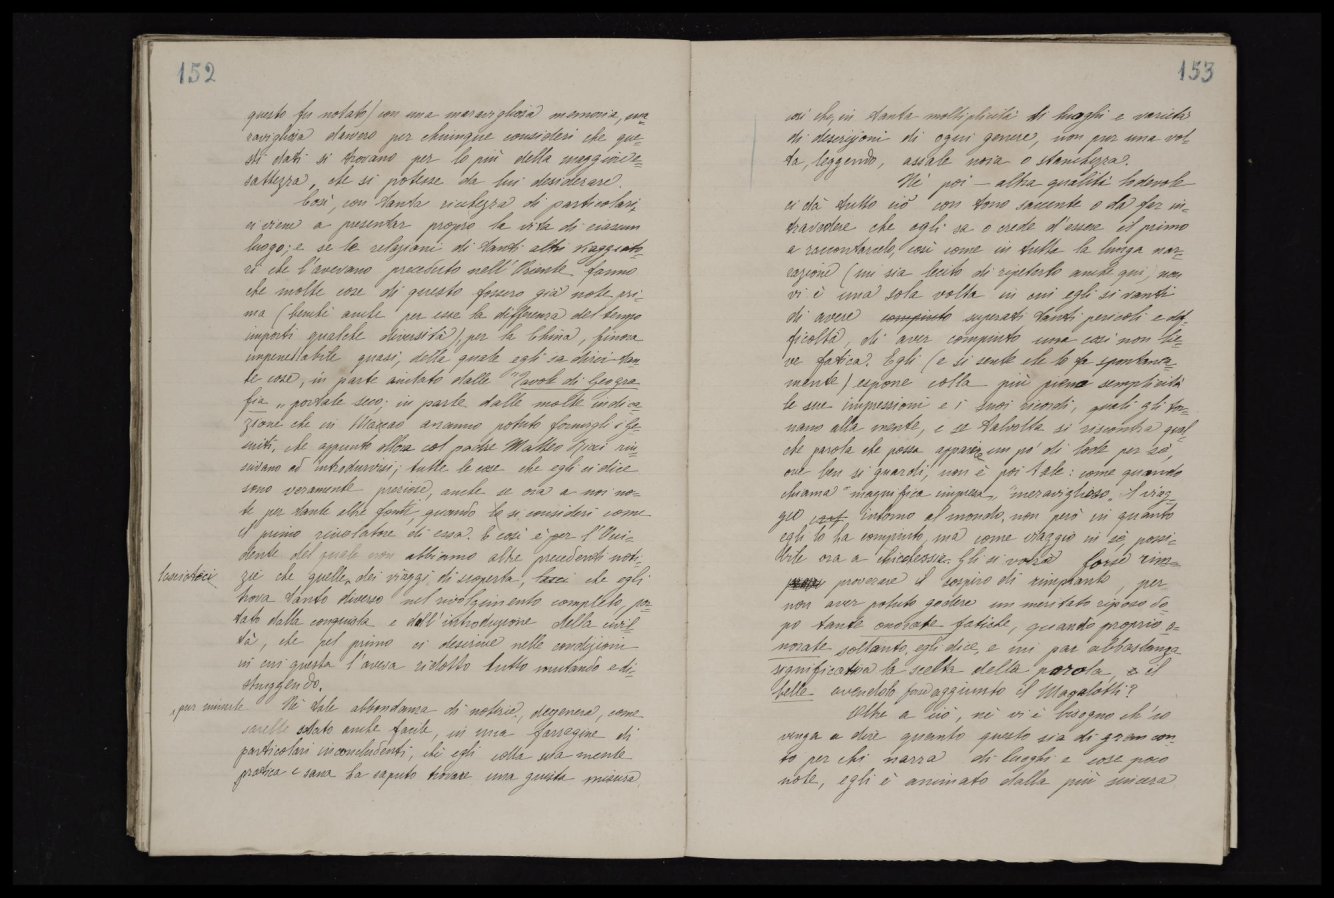 152
questo fu notato) con una maravigliosa memoria, ma=
ravigliosa davvero per chiunque consideri che que=
sti dati si trovano per lo più della maggior e=
sattezza, che si potesse da lui desiderare.
Così, con tanta ricchezza di particolari,
ci viene a presentar proprio la vita di ciascun
luogo; e se le relazioni di tanti altri viaggiato=
ri che l'avevano preceduto nell'Oriente fanno
che molte cose di questo fossero già note pri=
ma (benché anche per esse la differenza del tempo
importi qualche diversità), per la China, finora
impenetrabile quasi, della quale egli sa dirci tan=
te cose, in parte aiutato dalle "Tavole di Geogra
fia" portate seco; in parte dalle molte indica=
zioni che in Macao avranno potuto fornirgli i Ge=
suiti, che appunto allora col padre Matteo Ricci riu=
scivano ad introdurvisi; tutte le cose che egli ci dice
sono veramente preziose, anche se ora a noi no=
te per tante altre fonti, quando lo si consideri come
il primo rivelatore di essa. E così è per l'Occi=
dente del quale non abbiamo altre precedenti noti=
zie che quelle dei viaggi di scoperta, che egli
lasciatoci
trova tanto diverso nel rivolgimento completo por=
tato dalla conquista e dall'introduzione della civil
tà, che pel primo ci descrive nelle condizioni
in cui questa l'aveva ridotto tutto mutando e di=
struggendo.
pur minute
Né tale abbondanza di notizie, degenera, come
sarebbe stato anche facile, in una farragine di
particolari inconcludenti, ché egli colla sua mente
pratica e sana ha saputo trovare una giusta misura,
153
così che, in tanta moltiplicità di luoghi e varietà
di descrizioni di ogni genere, non pur una vol=
ta, leggendo, assale noia o stanchezza.
Né poi — altra qualità lodevole —
ci dà tutto ciò con tono saccente o da far in=
travedere che egli sa o crede d'essere il primo
a raccontarcelo, così come in tutta la lunga nar=
razione (mi sia lecito di ripeterlo anche qui), non
vi è una sola volta in cui egli si vanti
di avere compiuto superati tanti pericoli e dif=
ficoltà, di aver compiuto una così non lie=
ve fatica. Egli (e si sente che lo fa spontanea
mente) espone colla più piena semplicità
le sue impressioni e i suoi ricordi, quali gli tor=
nano alla mente, e se talvolta si riscontra qual=
che parola che possa apparire un pò di lode per sé,
ove ben si guardi, non è poi tale: come quando
chiama "magnifica impresa", "meraviglioso" il viag=
gio intorno al mondo, non però in quanto
egli lo ha compiuto, ma come viaggio in sé, possi=
bile ora a chicchessia. Gli si vorrà forse rim=
proverare il sospiro di rimpianto, per
non aver potuto godere un meritato riposo do=
po tante onorate fatiche, quando proprio o=
norate soltanto, egli dice, e mi par abbastanza
significativa la scelta della parola, il
belle avendolo poi aggiunto il Magalotti?
Oltre a ciò, né vi è bisogno ch'io
venga a dire quanto questo sia di gran con=
to per chi narra di luoghi e cose poco
note, egli è animato dalla più sincera